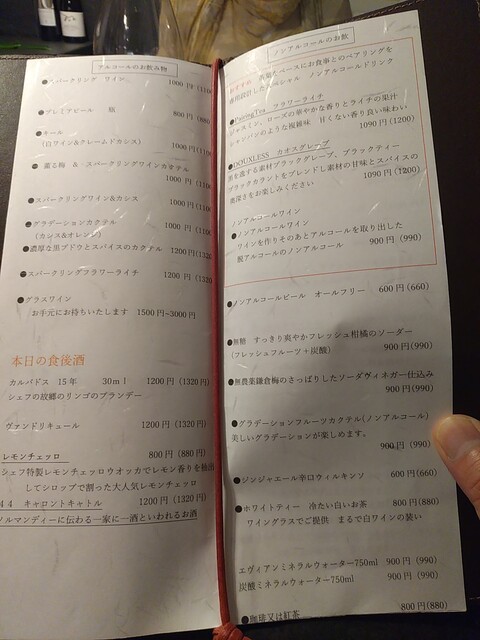 アルコールのお飲み物
●スパークリング ワイン 1000円
●プレミアビール 瓶 800円
●キール 1000円
(白ワイン&クレームドカシス)
● 薫る梅 &・スパークリングワインカクテル
1000円
●スパークリングワイン&カシス 1000円
●グラデーションカクテル 1000円
(カシス&オレンジ)
●濃厚な黒ブドウとスパイスのカクテル 1200円(1320
●スパークリングフラワーライチ 1200円(1320
●グラスワイン
お手元にお持ちいたします 1500円~3000円
本日の食後酒
カルバドス 15年 30ml 1200円(1320円)
シェフの故郷のリンゴのブランデー
ヴァンドリキュール 1200円(1320円)
レモンチェッロ 800円(880円)
シェフ特製レモンチェッロウオッカでレモン香りを抽出
してシロップで割った大人気レモンチェッロ
44 キャロントキャトル 1200円(1320円)
ノルマンディーに伝わる一家に一酒といわれるお酒
ノンアルコールのお飲
お茶をベースにお食事とのペアリングを
専用設計したスペシャル ノンアルコールドリンク
●PairingTea フラワーライチ
ジャスミン、ローズの華やかな香りとライチの果汁
シャンパンのような複雑味 甘くない香り良い味わい
1090円(1200)
●DOUXLESS カオスグレープ
黒を連する素材ブラックグレープ、ブラックティー
ブラックカラントをブレンドし素材の甘味とスパイスの
奥深さをお楽しみください 1090円(1200)
ノンアルコールワイン
●ノンアルコールワイン
ワインを作りそのあとアルコールを取り出した
脱アルコールのノンアルコール 900円(990)
●ノンアルコールビール オールフリー 600円(660)
●無糖 すっきり爽やかフレッシュ柑橘のソーダー
(フレッシュフルーツ+炭酸) 900円(990)
●無農薬鎌倉梅のさっぱりしたソーダヴィネガー仕込み
900円(990)
●グラデーションフルーツカクテル(ノンアルコール)
美しいグラデーションが楽しめます。
900円(990)
●ジンジャエール辛口ウィルキンソ 600円(660)
●ホワイトティー 冷たい白いお茶 800円(880)
ワイングラスでご提供 まるで白ワインの装い
エヴィアンミネラルウォーター750ml 900円(990)
炭酸ミネラルウォーター750ml 900円(990)
800円(880)
●珈琲又は紅茶